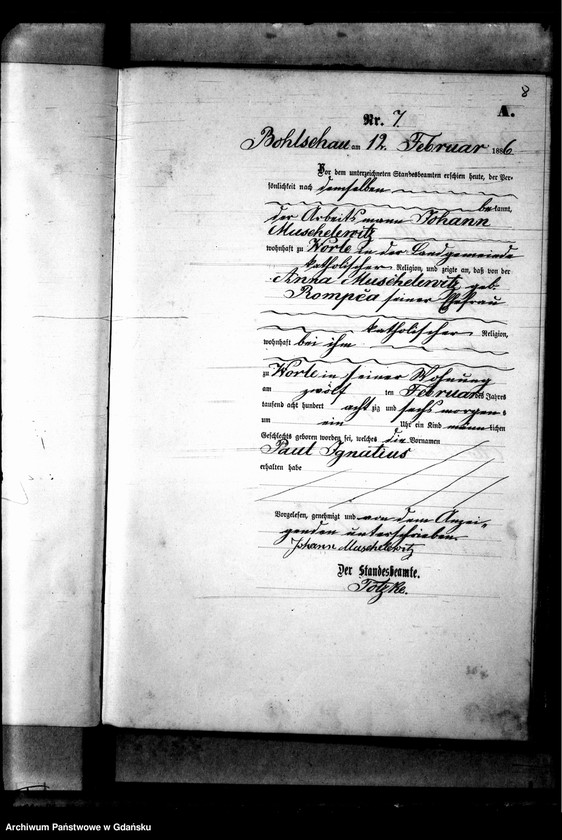 8
A.
Nr. 7
Bohlschau am 12. Februar 1886
Vor dem unterzeichneten Standesbeamten erschien heute, der Per-
sönlichkeit nach demselben
bekannt,
der Arbeitsmann Johann
Muschelewitz
wohnhaft zu Worle in der Landgemeinde
katholischer Religion, und zeigte an, daß von der
Anna Muschelewitz geb.
Rompča seiner Ehefrau
katholischer Religion,
wohnhaft bei ihm
zu Worle in seiner Wohnung
am zwölf ten Februar des Jahres
tausend acht hundert acht zig und sechs morgens
um ein Uhr ein Kind männlichen
Geschlechts geboren worden sei, welches die Vornamen
Paul Ignatius
erhalten habe
Vorgelesen, genehmigt und von dem Anzei-
genden unterschrieben.
Johann Muschelewitz
Der Standesbeamte.
Totzke.
Archiwum Państwowe w Gdańsku